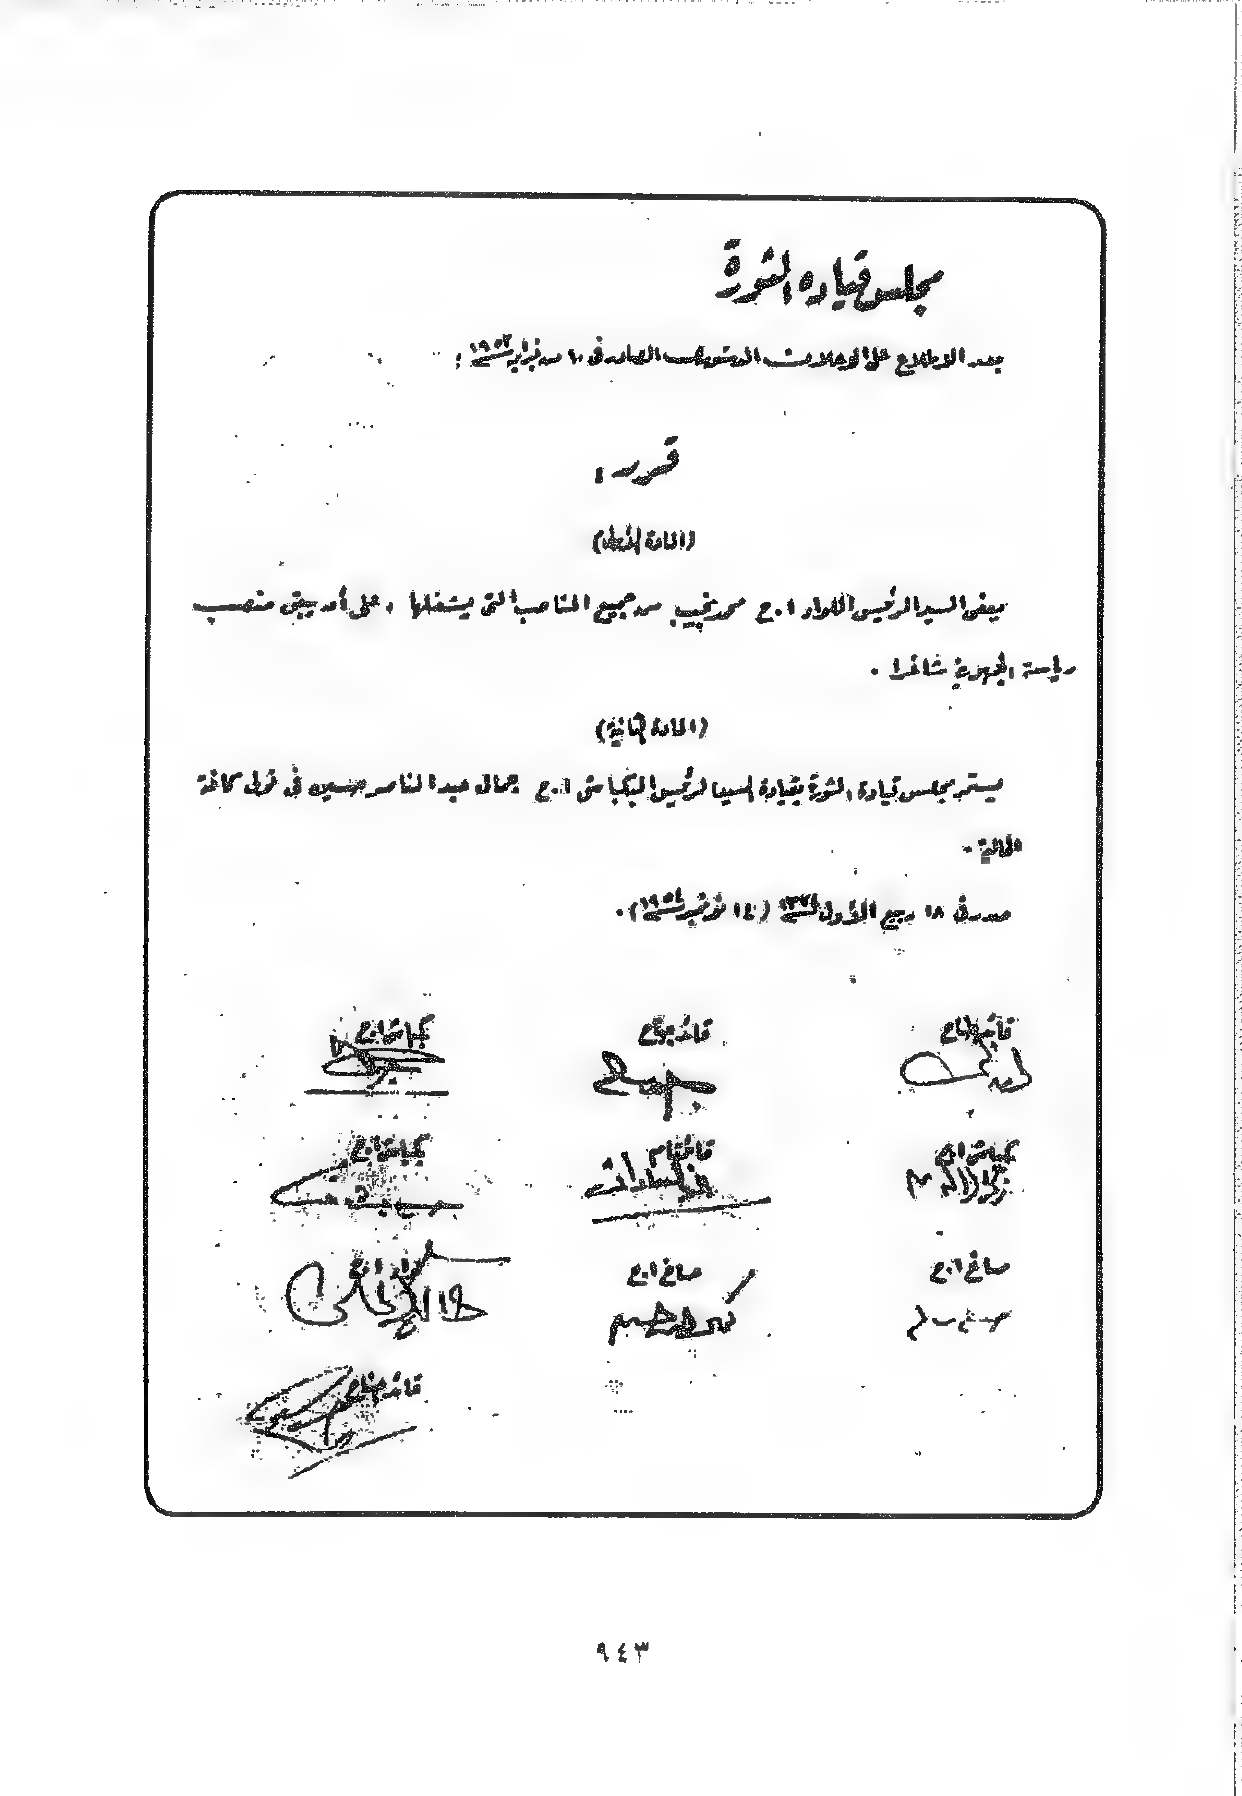 مجلس قيادة الثورة
بعد الاطلاع على الإعلان الدستوري الصادر في ١٠ من فبراير سنة ١٩٥٣ :
قرر :
(المادة الأولى)
يعفى السيد الرئيس اللواء ا.ح محمد نجيب من جميع المناصب التي يشغلها ، على أن يبقى منصب
رياسة الجمهورية شاغرا .
(المادة الثانية)
يستمر مجلس قيادة الثورة بقيادة السيد الرئيس البكباشى ا.ح جمال عبد الناصر حسين في تولى كافة
الحالية .
صدر في ١٨ ربيع الأول سنة ١٣٧٤ (١٤ نوفمبر سنة ١٩٥٤) .
قائد جناح قائد جناح بكباشى ا.ح
بكباشى ا.ح بكباشى ا.ح
زكريا
صاغ ا.ح صاغ ا.ح
كمال الدين حسين
قائد جناح
٩٤٣